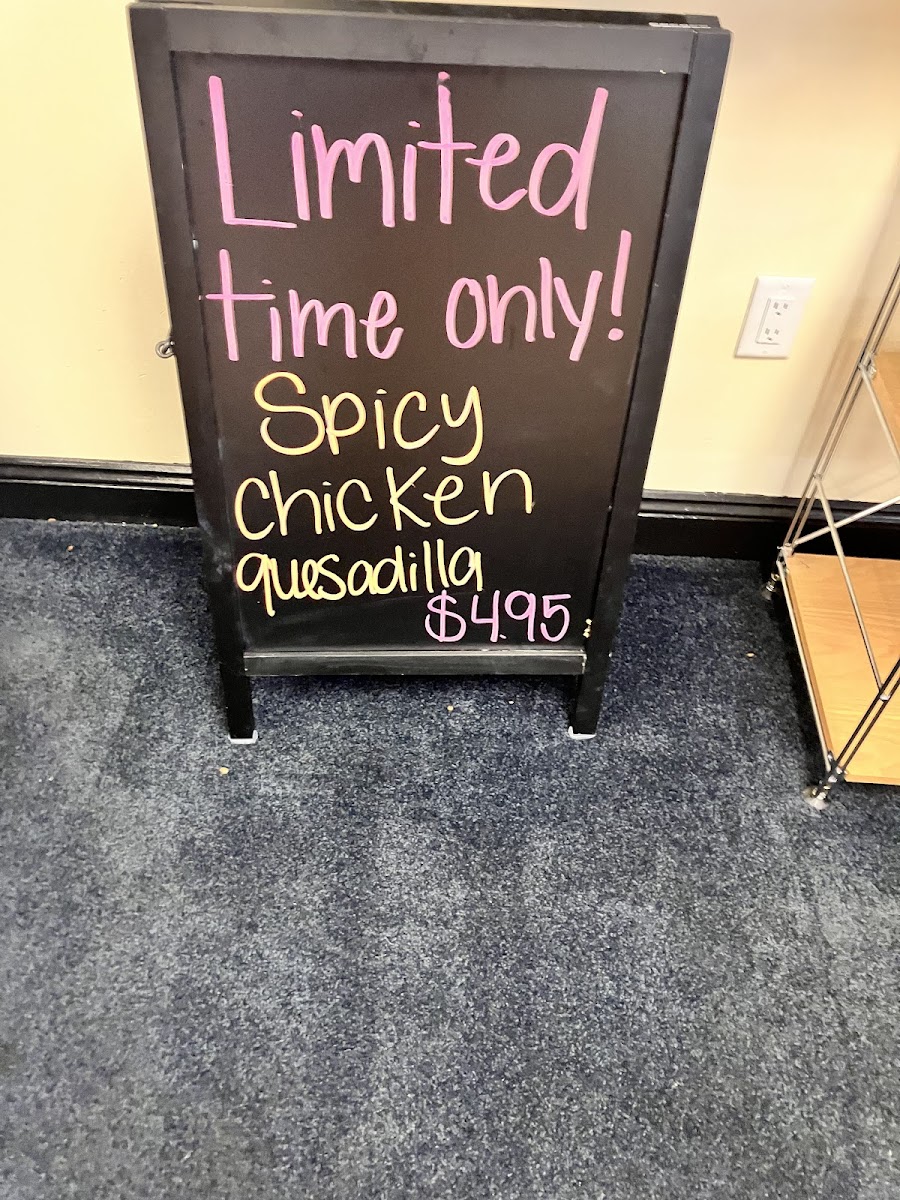 Limited
time only!
Spicy
chicken
quesadilla
$4.95